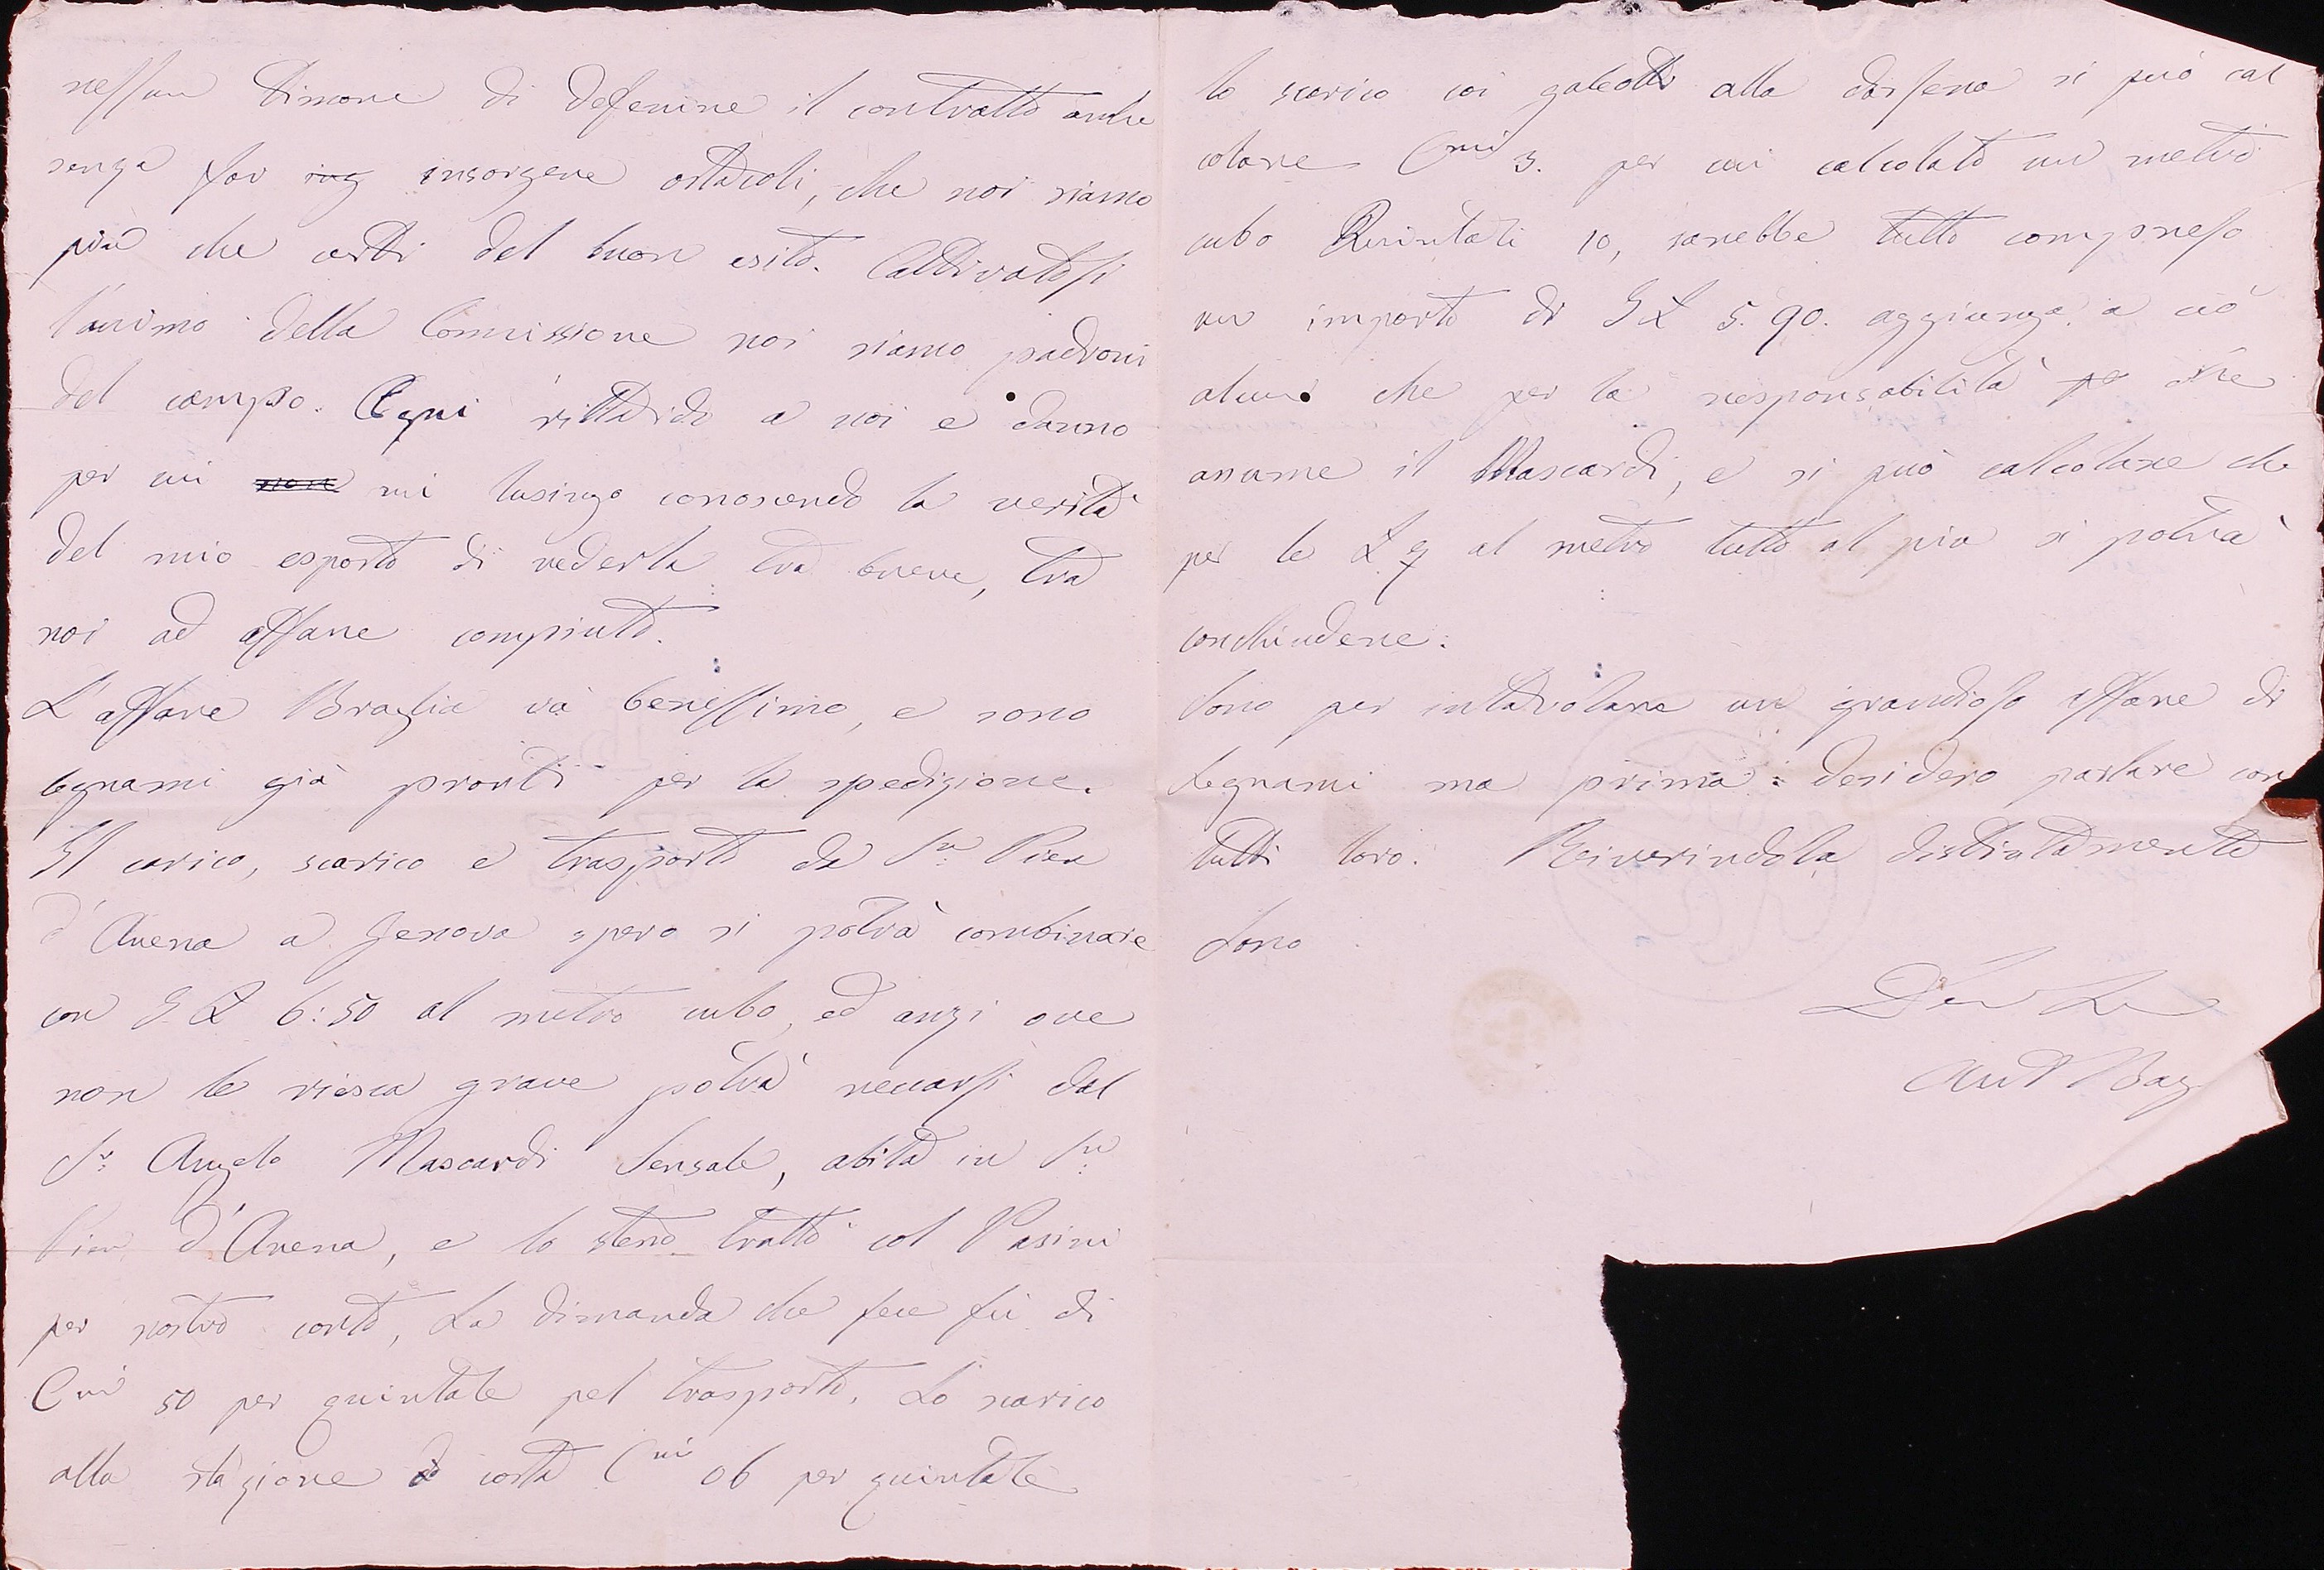 nessun timore di defenire il contratto anche
senza far ing insorgere ostacoli, che noi siamo
più che certi del buon esito. Cattivatosi
l'animo della Commissione noi siamo padroni
del campo. Ogni rittardo a noi e danno
per cui non mi lusingo conoscendo la verità
del mio esposto di vederla tra breve, tra
noi ad affare compiuto.
L'affare Braglia và benessimo, e sono
legnami già pronti per la spedizione.
Il carico, scarico e trasporto da Sn. Pier
d'Arena a Genova spero si potrà combinare
con £ 6:50 al metro cubo, ed anzi ove
non le riesca grave potrà reccarsi dal
Sr. Angelo Mascardi Sensale, abita in Sn.
Pier d'Arena, e lo stesso trattò col Pasini
per nostro conto, La dimanda che fece fù di
Cmi 50 per quintale pel trasporto. Lo scarico
alla stazione costa Cmi 06 per quintale
lo scarico coi galeotti alla darsena si può cal
colare Cmi 3. per cui calcolato un metro
cubo Quintali 10, sarebbe tutto compreso
un importo di £ 5.90. aggiunga a ciò
alcun che per la responsabilità pe che
assume il Mascardi, e si può calcolare che
per le £ 7 al metro tutto al più si potrà
conchiudere.
Sono per intavolare un grandioso affare di
Legnami ma prima desidero parlare con
tutti loro. Reiverindola distintamente
Sono
Ant Bag